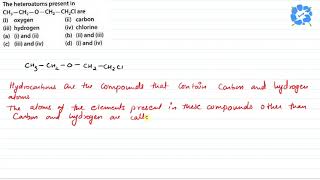 The heteroatoms present in
CH₃—CH₂—O—CH₂—CH₂Cl are
(i) oxygen (ii) carbon
(iii) hydrogen (iv) chlorine
(a) (i) and (ii) (b) (ii) and (iii)
(c) (iii) and (iv) (d) (i) and (iv)
CH₃—CH₂—O—CH₂—CH₂Cl
Hydrocarbons are the compounds that contain carbon and hydrogen
atoms.
The atoms of the elements present in these compounds other than
Carbon and hydrogen are calle